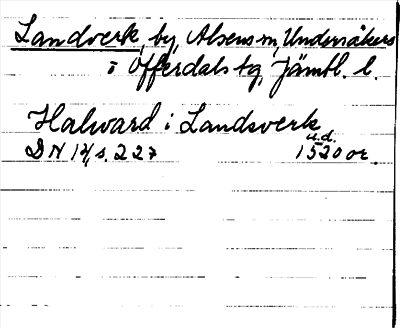 Landverk, by, Alsens sn, Undersåkers
o Offerdals tg, Jämtl. l.
Halward i Landsverk
u.d.
DN 14, s. 227 1520 or.